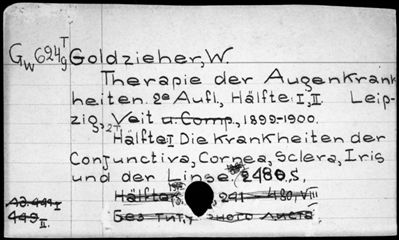 Gw 624 T/g Goldzieher, W.
Therapie der Augenkrank
heiten. 2e Aufl., Hälfte: I, II. Leip-
zig, Veit u. Comp., 1899-1900.
2T
Hälfte I Die Krankheiten der
Conjunctiva, Cornea, Sclera, Iris
und der Linse. 240 S.
Hälfte 241-480, VIII
Без тит. листа
449 II.